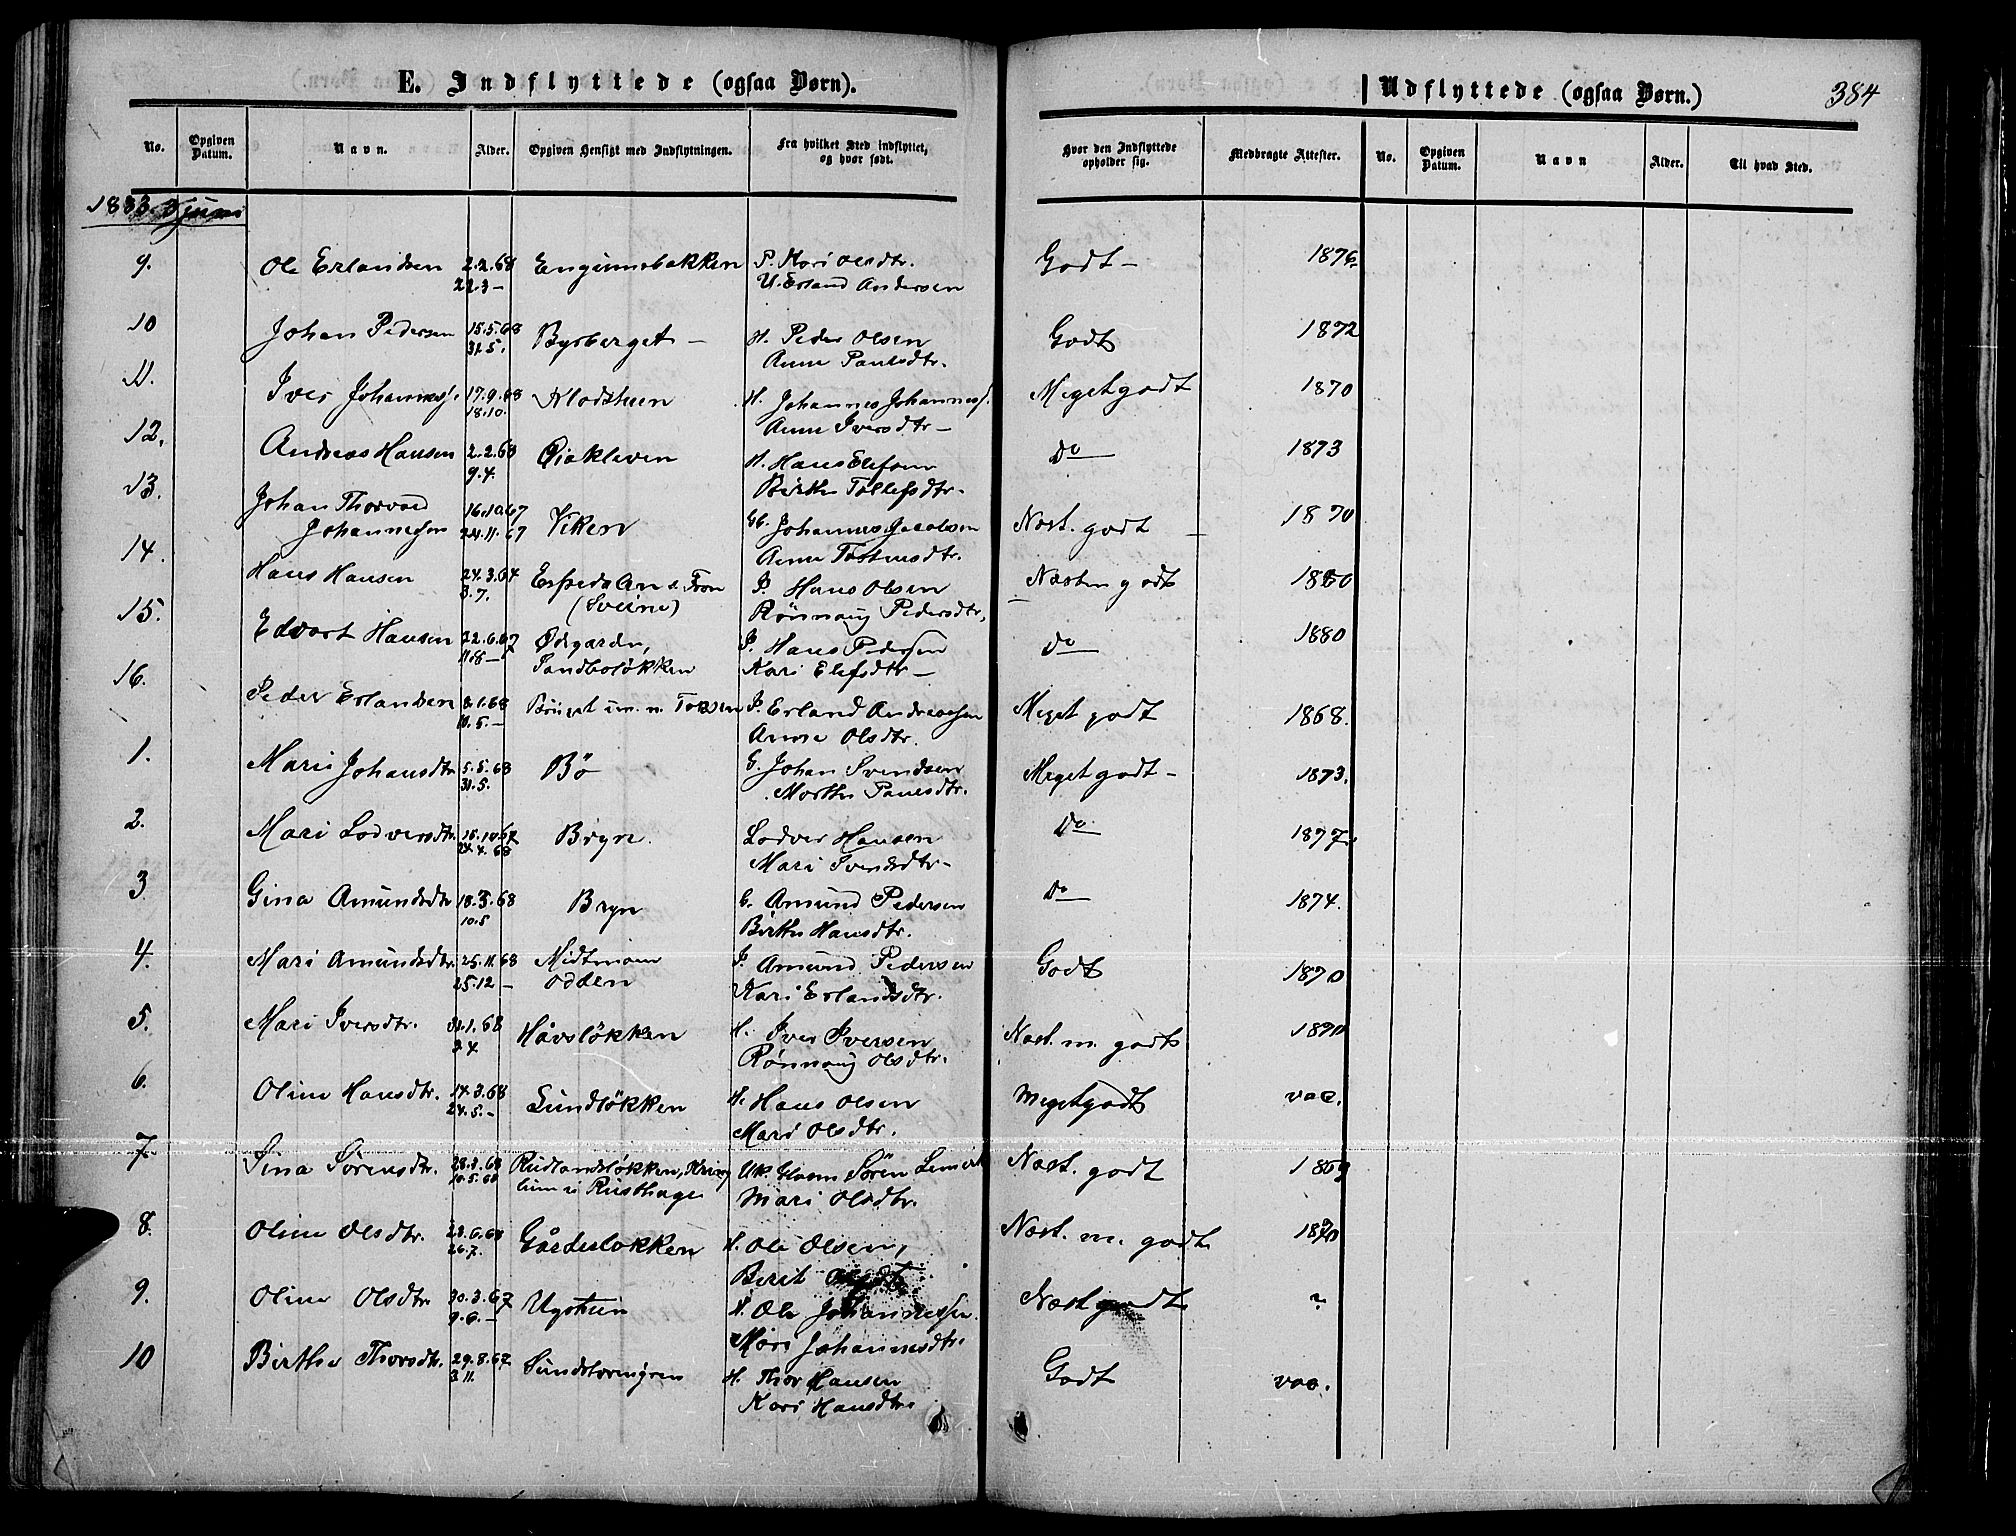 E. Indflyttede (ogsaa Børn).
Udflyttede (ogsaa Børn.)
384
No. Opgiven Datum. Navn. Alder. Opgiven Hensigt med Indflytningen. Fra hvilket Sted indflyttet, og hvor født. Hvor den Indflyttede opholder sig. Medbragte Attester. No. Opgiven Datum. Navn Alder. Til hvad Sted.
1883. 3 juni
9. Ole Erlandsen 2.2.68 P. Kari Olsdtr. Godt – 1876.
22.3 – U. Erland Andersen
10 Johan Pedersen 15.5.68 Bysberget – H. Peder Olsen Godt 1872
31.5. Anne Paulsdtr.
11. Iver Johanness. 17.9.68 Klodstuen H. Johannes Johanness. Meget godt 1870
18.10. Anne Iversdtr –
12. Andreas Hansen 2.2.68 Øiakleven H. Hans Elefsen Do 1873
9.4. Birthe Tollefsdtr.
13. Johan Thorvald 16.10.67 Viken Gb. Johannes Jacobsen Næst. godt – 1870
Johannesen 24.11.67 Anne Tostensdtr.
14. Hans Hansen 24.3.64 P. Hans Olsen Næsten godt 1880
3.7. (Sveine) Rønnaug Pedersdtr.
15. Edvart Hansen 22.6.67 Ødegarden, P. Hans Pedersen Do 1880
11.8 – Sandboløkken Kari Elefsdtr –
16. Peder Erlandsen 8.1.68 P. Erland Andreasen Meget godt 1868.
10.5. – Anne Olsdtr.
1. Mari Johansdtr 5.5.68 Bö G. Johan Svendsen Meget godt – 1873.
31.5. Marthe Paulsdtr.
2. Mari Lodversdtr. 15.10.67 Bryn. Lodver Hansen Do 1877.
24.4.68 Mari Svendsdtr –
3 Gina Amundsdtr 18.3.68 Bryn G. Amund Pedersen Do 1874.
10.5 Birthe Hansdtr.
4. Mari Amundsdtr. 25.11.68 Midtmoen P. Amund Pedersen Godt 1870
25.12 – odden Kari Erlandsdtr.
5. Mari Iversdtr. 31.1.68 Håvsløkken H. Iver Iversen Næst. m. godt 1870
2.4 Rønnaug Olsdtr.
6. Oline Hansdtr. 14.3.68 Sundløkken H. Hans Olsen Meget godt vac.
24.5. – Mari Olsdtr.
7. Sina Sørensdtr. 28.3.68 Rudlandsløkken, Søren Næst. godt 1869
10.5.68 Rusthage Mari Olsdtr.
8. Oline Olsdtr. 28.6.68 Gårdeløkken H. Ole Olsen, Næst. m. godt 1870
26.7. Berit
9. Oline Olsdtr 30.3.67 Ugstuen H. Ole Johannessen. Næst godt ?
9.6. – Mari Johannesdtr.
10 Birthe Thorsdtr. 29.8.67 H. Thor Hansen Godt vac.
3.11. Kari Hansdtr.